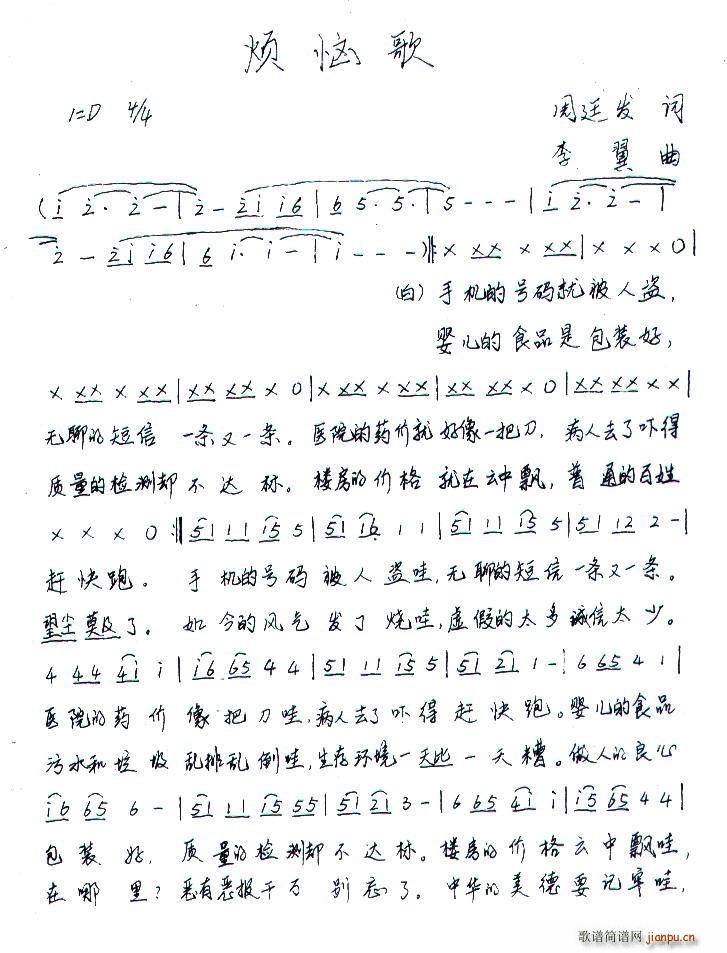 烦恼歌
1=D 4/4
周廷发 词
李翼 曲
(i 2· 2 — | 2 — 2i i6 | 6 5· 5· | 5 - - - | i 2· 2 — |
2 — 2i i6 | 6 i· i — | i - - - )‖: x xx x xx | x x x 0 |
(白) 手机的号码就被人盗,
婴儿的食品是包装好,
x xx x xx | xx xx x 0 | x xx x xx | xx xx x 0 | xx xx x x |
无聊的短信 一条又一条。医院的药价就好像一把刀, 病人去了吓得
质量的检测却不达标。楼房的价格就在云中飘, 普通的百姓
x x x 0 :‖ 51 11 i5 5 | 51 i6 1 1 | 51 11 i5 5 | 51 12 2 - |
赶快跑。 手机的号码被人盗哇, 无聊的短信一条又一条。
望尘莫及了。 如今的风气发了烧哇, 虚假的太多诚信太少。
4 44 41 i | i6 65 4 4 | 51 11 i5 5 | 51 21 1 - | 6 65 4 1 |
医院的药价像把刀哇, 病人去了吓得赶快跑。婴儿的食品
污水和垃圾乱排乱倒哇, 生存环境一天比一天糟。做人的良心
i6 65 6 - | 51 11 i5 55 | 51 21 3 - | 6 65 4i i | i5 65 4 4 |
包装好, 质量的检测却不达标。楼房的价格云中飘哇,
在哪里? 恶有恶报千万别忘了。中华的美德要记牢哇,
歌谱简谱网 jianpu.cn